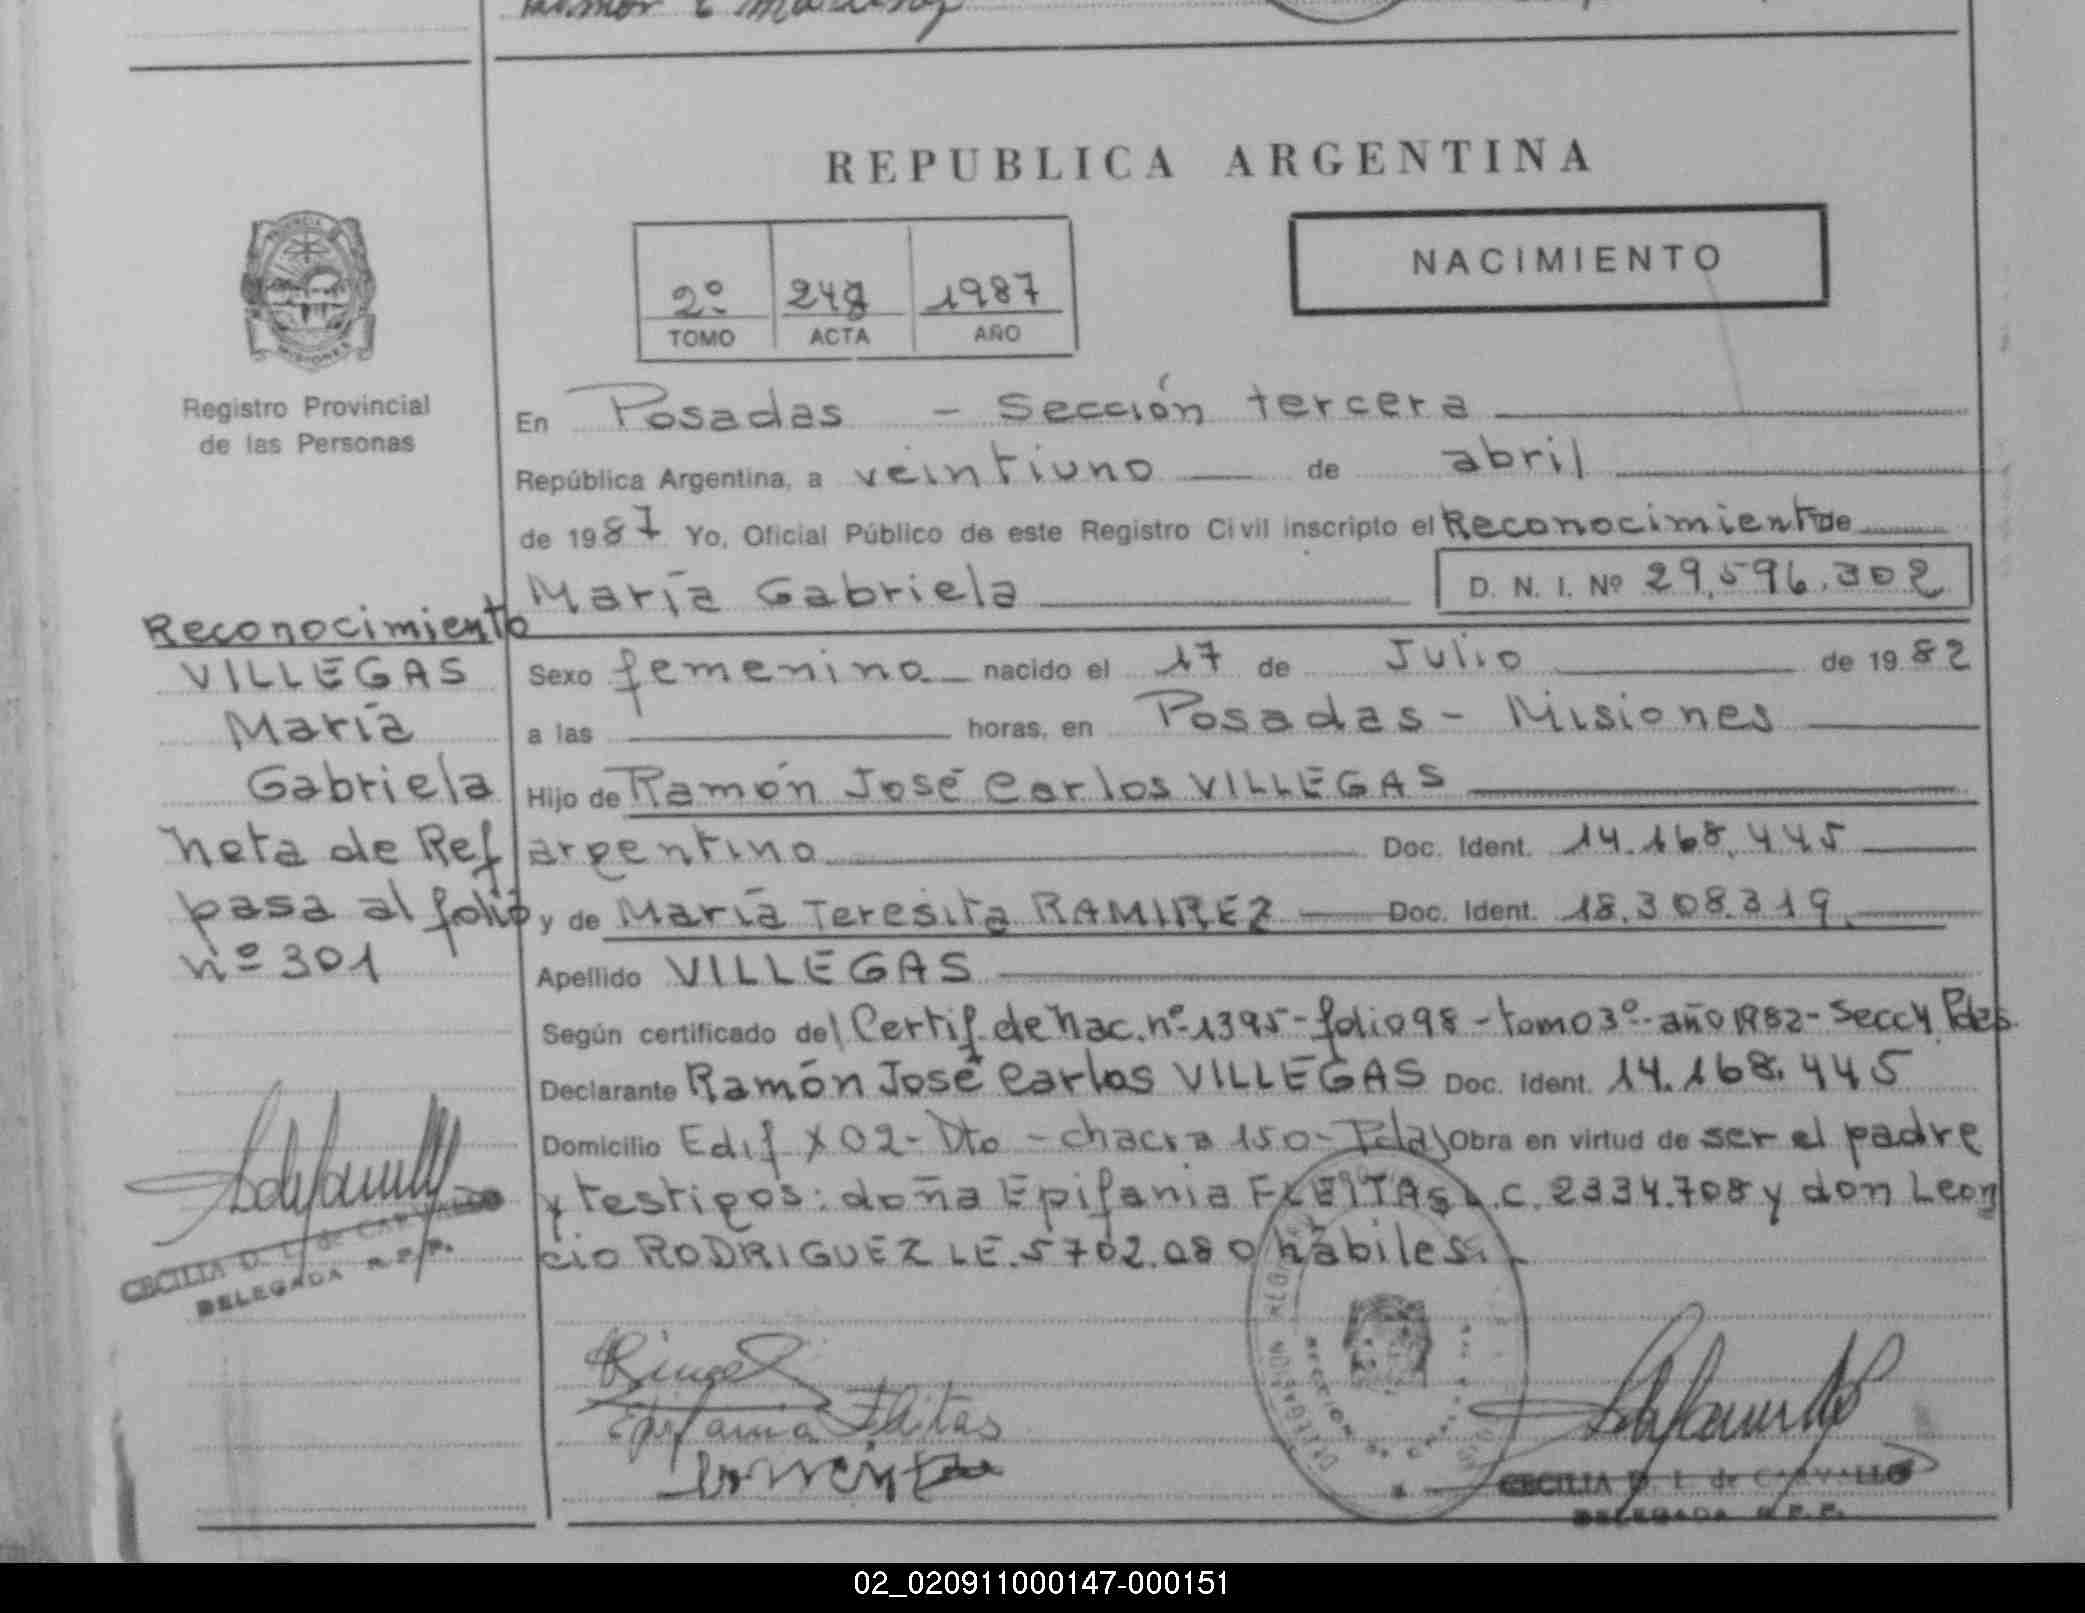 REPUBLICA ARGENTINA
NACIMIENTO
2º 1987
TOMO ACTA AÑO
MISIONES
Registro Provincial
de las Personas
En Posadas - Sección tercera
República Argentina, a veintiuno de abril
de 1987 Yo, Oficial Público de este Registro Civil inscripto el Reconocimiento de
María Gabriela D. N. I. Nº 29.596.302
Sexo femenino nacido el 17 de Julio de 1982
a las horas, en Posadas - Misiones
Hijo de Ramón José Carlos VILLEGAS
argentino Doc. Ident. 14.168.445
y de María Teresita RAMIREZ Doc. Ident. 18.308.319.
Apellido VILLEGAS
Según certificado del Certif. de nac. nº 1395 - folio 98 - tomo 3º - año 1982 - Secc 4 Pdas.
Declarante Ramón José Carlos VILLEGAS Doc. Ident. 14.168.445
Domicilio Edif x 02 - Dto - chacra 150 - Pdas Obra en virtud de ser el padre
y testigos: doña Epifania FLEITAS L.C. 2334.708 y don Leon
cio RODRIGUEZ LE. 5702.080 hábiles.
Reconocimiento
VILLEGAS
María
Gabriela
Nota de Ref
pasa al folio
nº 301
CECILIA D. L. de CARVALLO
DELEGADA R.P.P.
Epifania Fleitas
CECILIA D. L. de CARVALLO
DELEGADA R.P.P.
02_020911000147-000151